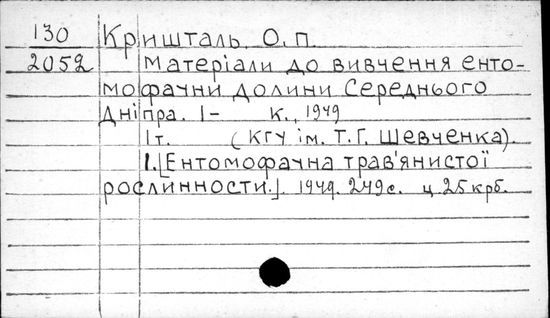 130
2052
Кришталь, О. П.
Матеріали до вивчення енто-
мофауни долини Середнього
Дніпра. I- К., 1949
Iт. (КГУ ім. Т. Г. Шевченка).
I. [Ентомофауна трав'янистої
рослинности.]. 1949. 249с. ц 25крб.